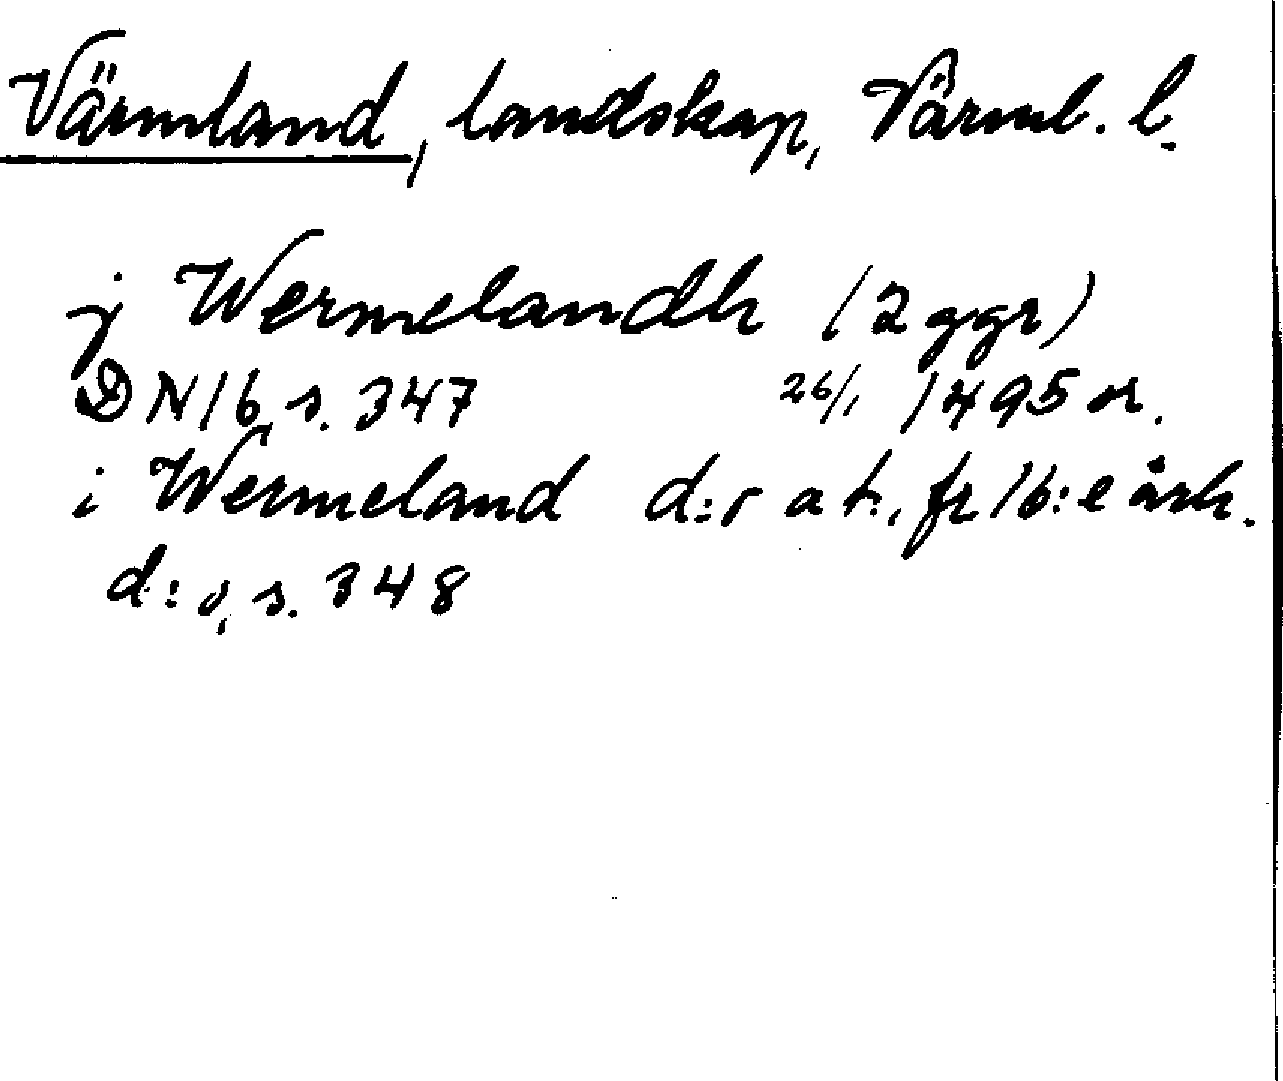 Värmland, landskap, Värml. l.
j Wermelandh (2 ggr)
DN 16, s. 347 26/1 1495 or.
i Wermeland d:o a t., fr 16:e årh.
d:o, s. 348